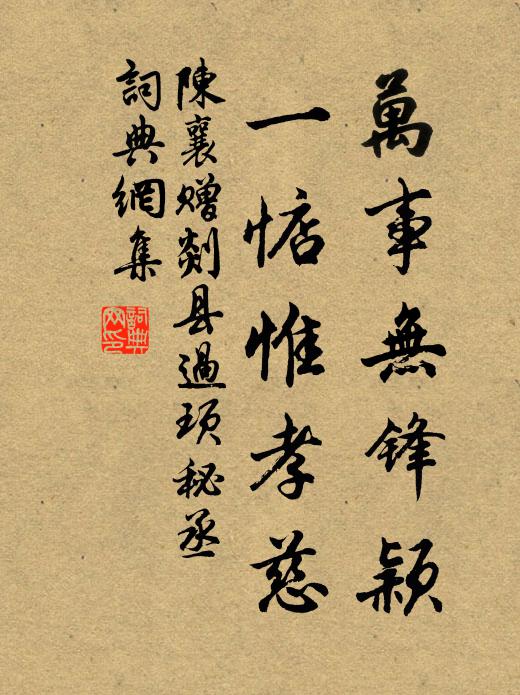 萬事無鋒穎
一惦惟孝慈
陳襄贈剡县過項秘丞
詞典網集
詞典網印